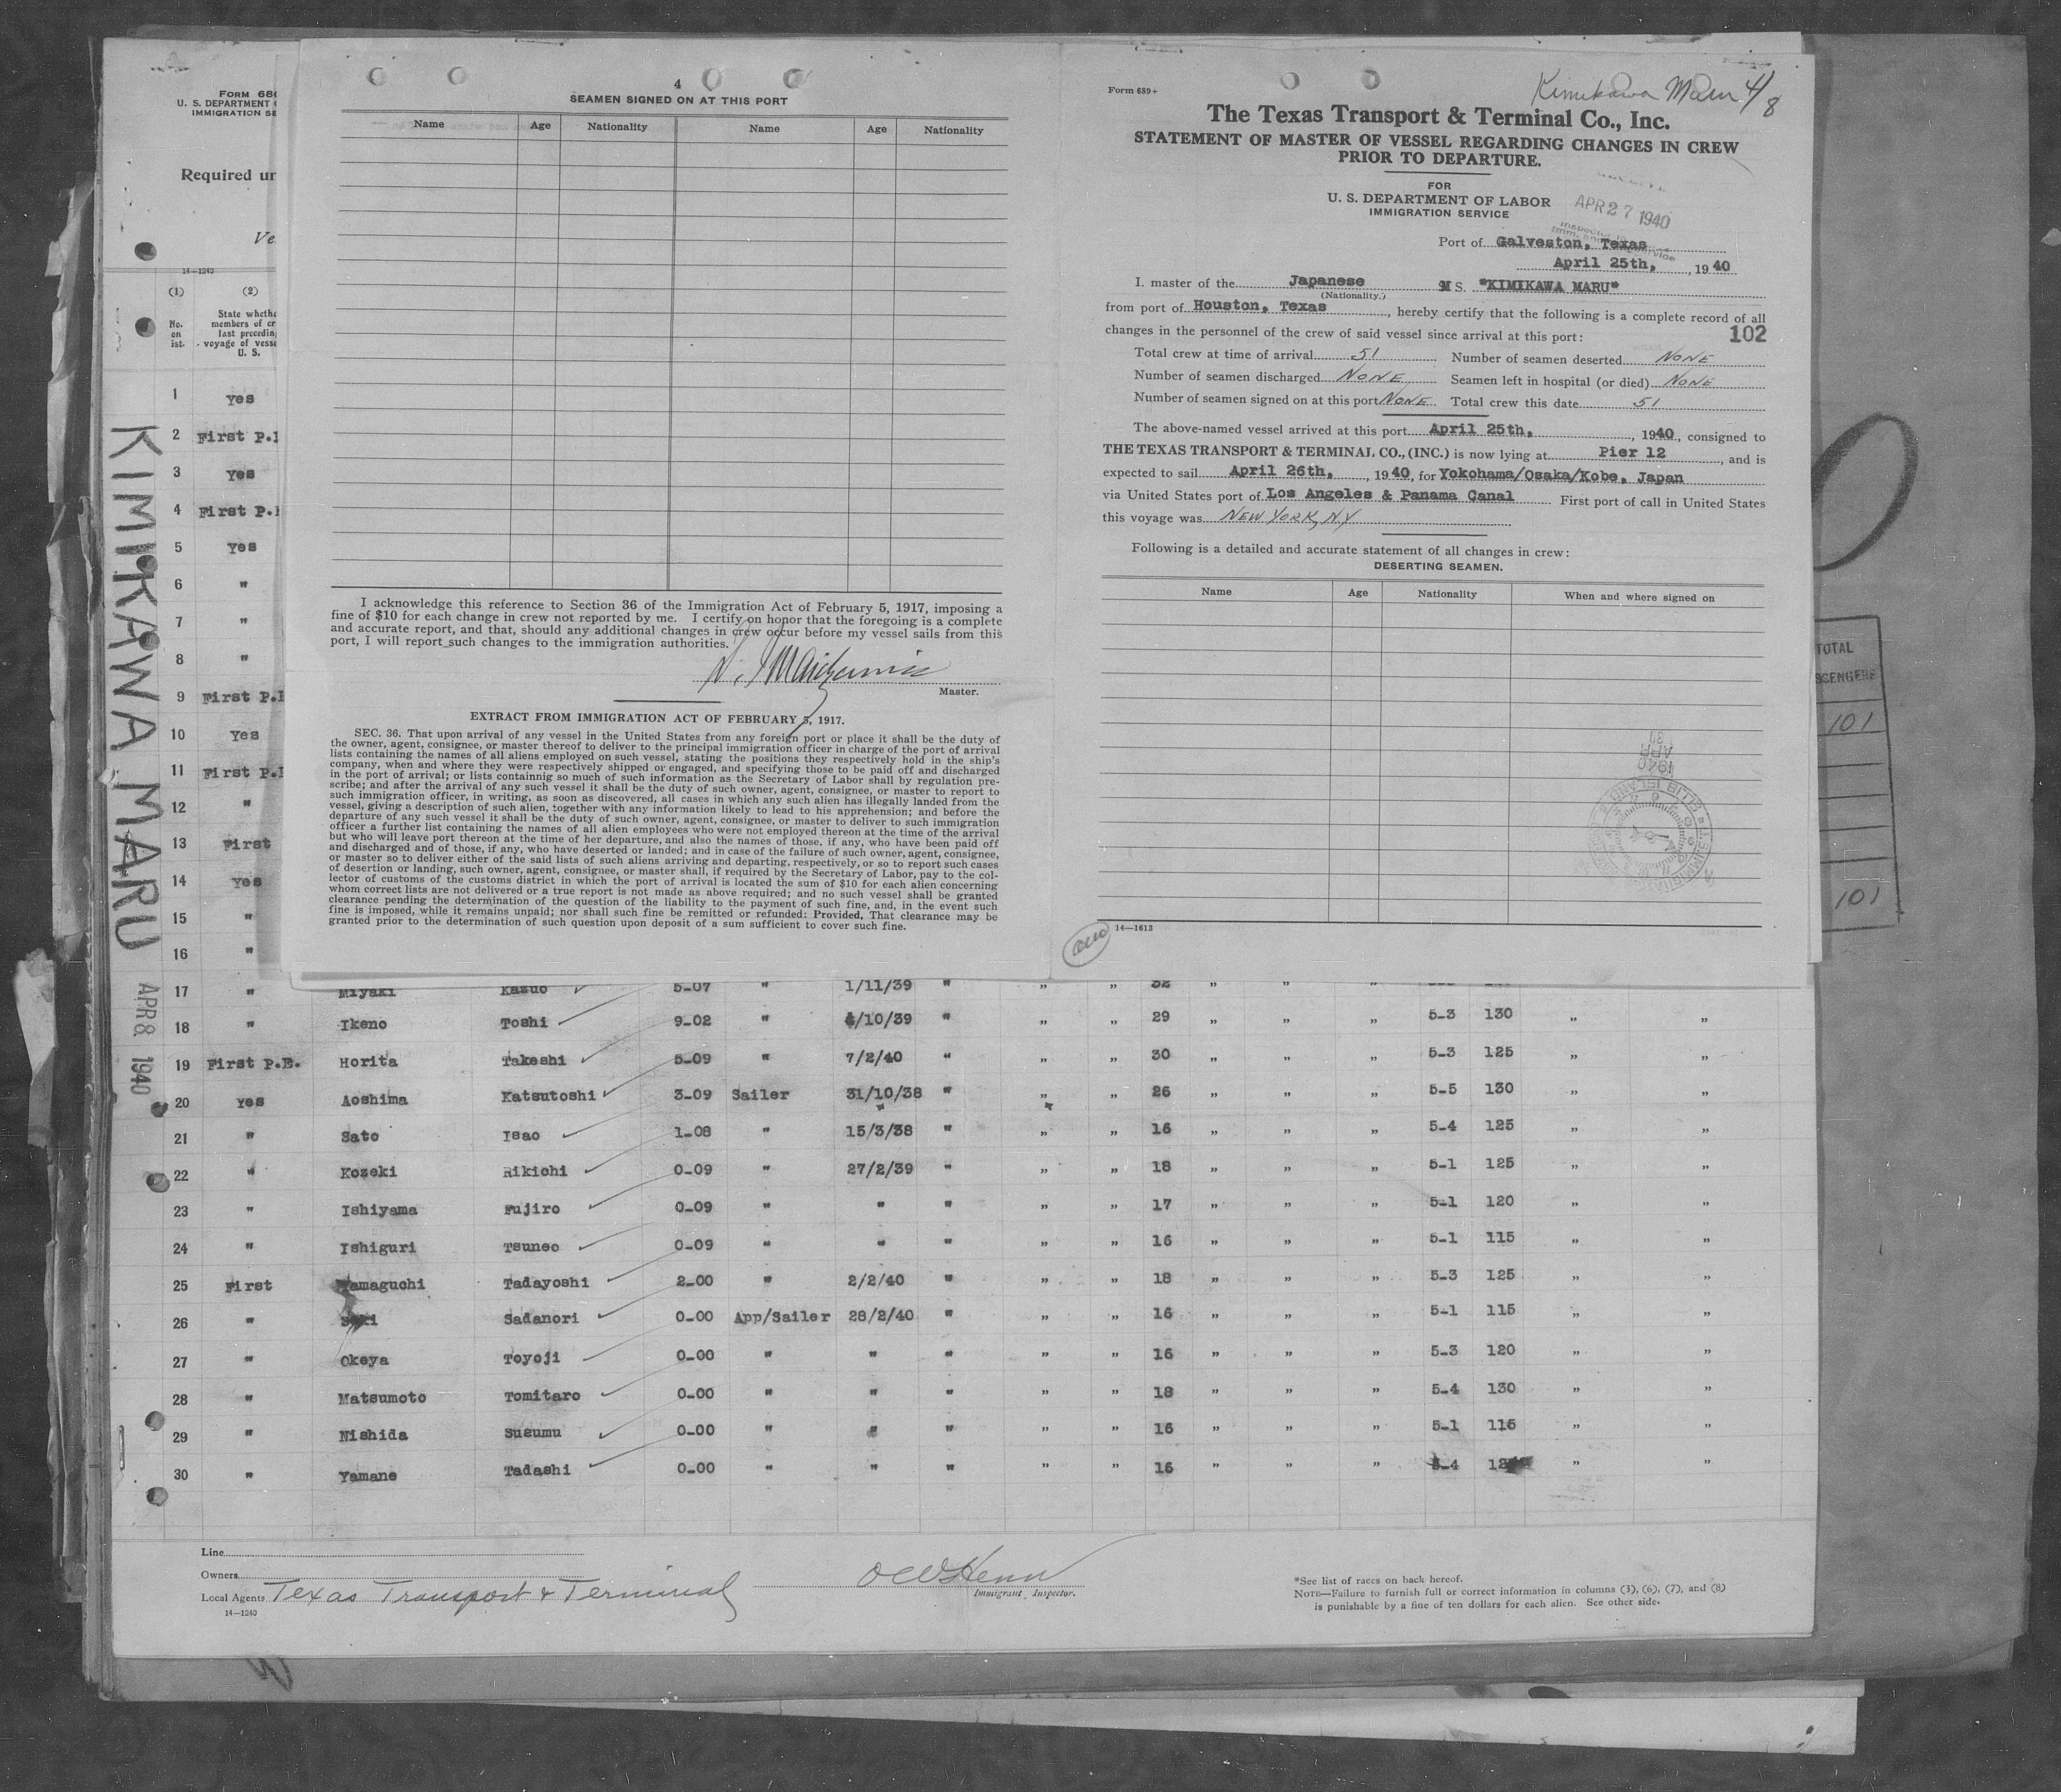 Form 680
U. S. DEPARTMENT
IMMIGRATION SE
Required un
Ve
14—1240
(1) (2)
No. on ist.
State whethe
members of cr
last precedin
voyage of vesse
U. S.
1 Yes
2 First P.
3 Yes
4 First P.
5 Yes
6 "
7 "
8 "
9 First P.E
10 Yes
11 First P.E
12 "
13 First
14 Yes
15 "
16 "
KIMIKAWA MARU
APR 8 1940
4
SEAMEN SIGNED ON AT THIS PORT
Name Age Nationality Name Age Nationality
I acknowledge this reference to Section 36 of the Immigration Act of February 5, 1917, imposing a
fine of $10 for each change in crew not reported by me. I certify on honor that the foregoing is a complete
and accurate report, and that, should any additional changes in crew occur before my vessel sails from this
port, I will report such changes to the immigration authorities.
Master.
EXTRACT FROM IMMIGRATION ACT OF FEBRUARY 5, 1917.
SEC. 36. That upon arrival of any vessel in the United States from any foreign port or place it shall be the duty of
the owner, agent, consignee, or master thereof to deliver to the principal immigration officer in charge of the port of arrival
lists containing the names of all aliens employed on such vessel, stating the positions they respectively hold in the ship's
company, when and where they were respectively shipped or engaged, and specifying those to be paid off and discharged
in the port of arrival; or lists containnig so much of such information as the Secretary of Labor shall by regulation pre-
scribe; and after the arrival of any such vessel it shall be the duty of such owner, agent, consignee, or master to report to
such immigration officer, in writing, as soon as discovered, all cases in which any such alien has illegally landed from the
vessel, giving a description of such alien, together with any information likely to lead to his apprehension; and before the
departure of any such vessel it shall be the duty of such owner, agent, consignee, or master to deliver to such immigration
officer a further list containing the names of all alien employees who were not employed thereon at the time of the arrival
but who will leave port thereon at the time of her departure, and also the names of those, if any, who have been paid off
and discharged and of those, if any, who have deserted or landed; and in case of the failure of such owner, agent, consignee,
or master so to deliver either of the said lists of such aliens arriving and departing, respectively, or so to report such cases
of desertion or landing, such owner, agent, consignee, or master shall, if required by the Secretary of Labor, pay to the col-
lector of customs of the customs district in which the port of arrival is located the sum of $10 for each alien concerning
whom correct lists are not delivered or a true report is not made as above required; and no such vessel shall be granted
clearance pending the determination of the question of the liability to the payment of such fine, and, in the event such
fine is imposed, while it remains unpaid; nor shall such fine be remitted or refunded: Provided, That clearance may be
granted prior to the determination of such question upon deposit of a sum sufficient to cover such fine.
Form 689+
Kimikawa Maru 4/8
The Texas Transport & Terminal Co., Inc.
STATEMENT OF MASTER OF VESSEL REGARDING CHANGES IN CREW
PRIOR TO DEPARTURE.
FOR
U. S. DEPARTMENT OF LABOR
IMMIGRATION SERVICE
APR 27 1940
Port of Galveston, Texas
April 25th, , 19 40
I. master of the Japanese M S. "KIMIKAWA MARU"
(Nationality.)
from port of Houston, Texas , hereby certify that the following is a complete record of all
changes in the personnel of the crew of said vessel since arrival at this port:
102
Total crew at time of arrival 51 Number of seamen deserted NONE
Number of seamen discharged NONE Seamen left in hospital (or died) NONE
Number of seamen signed on at this port NONE Total crew this date 51
The above-named vessel arrived at this port April 25th, , 1940, consigned to
THE TEXAS TRANSPORT & TERMINAL CO., (INC.) is now lying at Pier 12 , and is
expected to sail April 26th, , 1940, for Yokohama/Osaka/Kobe, Japan
via United States port of Los Angeles & Panama Canal First port of call in United States
this voyage was NEW YORK, N.Y
Following is a detailed and accurate statement of all changes in crew:
DESERTING SEAMEN.
Name Age Nationality When and where signed on
1940
APR
30
14—1613
TOTAL
101
101
17 " Miyaki Kazuo 5-07 " 1/11/39 " " " 32 " " "
18 " Ikeno Toshi 9-02 " 4/10/39 " " " 29 " " " 5-3 130 " "
19 First P.E. Horita Takeshi 5-09 " 7/2/40 " " " 30 " " " 5-3 125 " "
20 Yes Aoshima Katsutoshi 3-09 Sailer 31/10/38 " " " 26 " " " 5-5 130 " "
21 " Sato Isao 1-08 " 15/3/38 " " " 16 " " " 5-4 125 " "
22 " Kozeki Rikichi 0-09 " 27/2/39 " " " 18 " " " 5-1 125 " "
23 " Ishiyama Fujiro 0-09 " " " " " 17 " " " 5-1 120 " "
24 " Ishiguri Tsuneo 0-09 " " " " " 16 " " " 5-1 115 " "
25 First Yamaguchi Tadayoshi 2-00 " 2/2/40 " " " 18 " " " 5-3 125 " "
26 " Sadanori 0-00 App/Sailer 28/2/40 " " " 16 " " " 5-1 115 " "
27 " Okeya Toyoji 0-00 " " " " " 16 " " " 5-3 120 " "
28 " Matsumoto Tomitaro 0-00 " " " " " 18 " " " 5-4 130 " "
29 " Nishida Susumu 0-00 " " " " " 16 " " " 5-1 115 " "
30 " Yamane Tadashi 0-00 " " " " " 16 " " " 5-4 " "
Line
Owners
Local Agents Texas Transport & Terminal
14—1240
Immigrant Inspector.
*See list of races on back hereof.
NOTE—Failure to furnish full or correct information in columns (3), (6), (7), and (8)
is punishable by a fine of ten dollars for each alien. See other side.